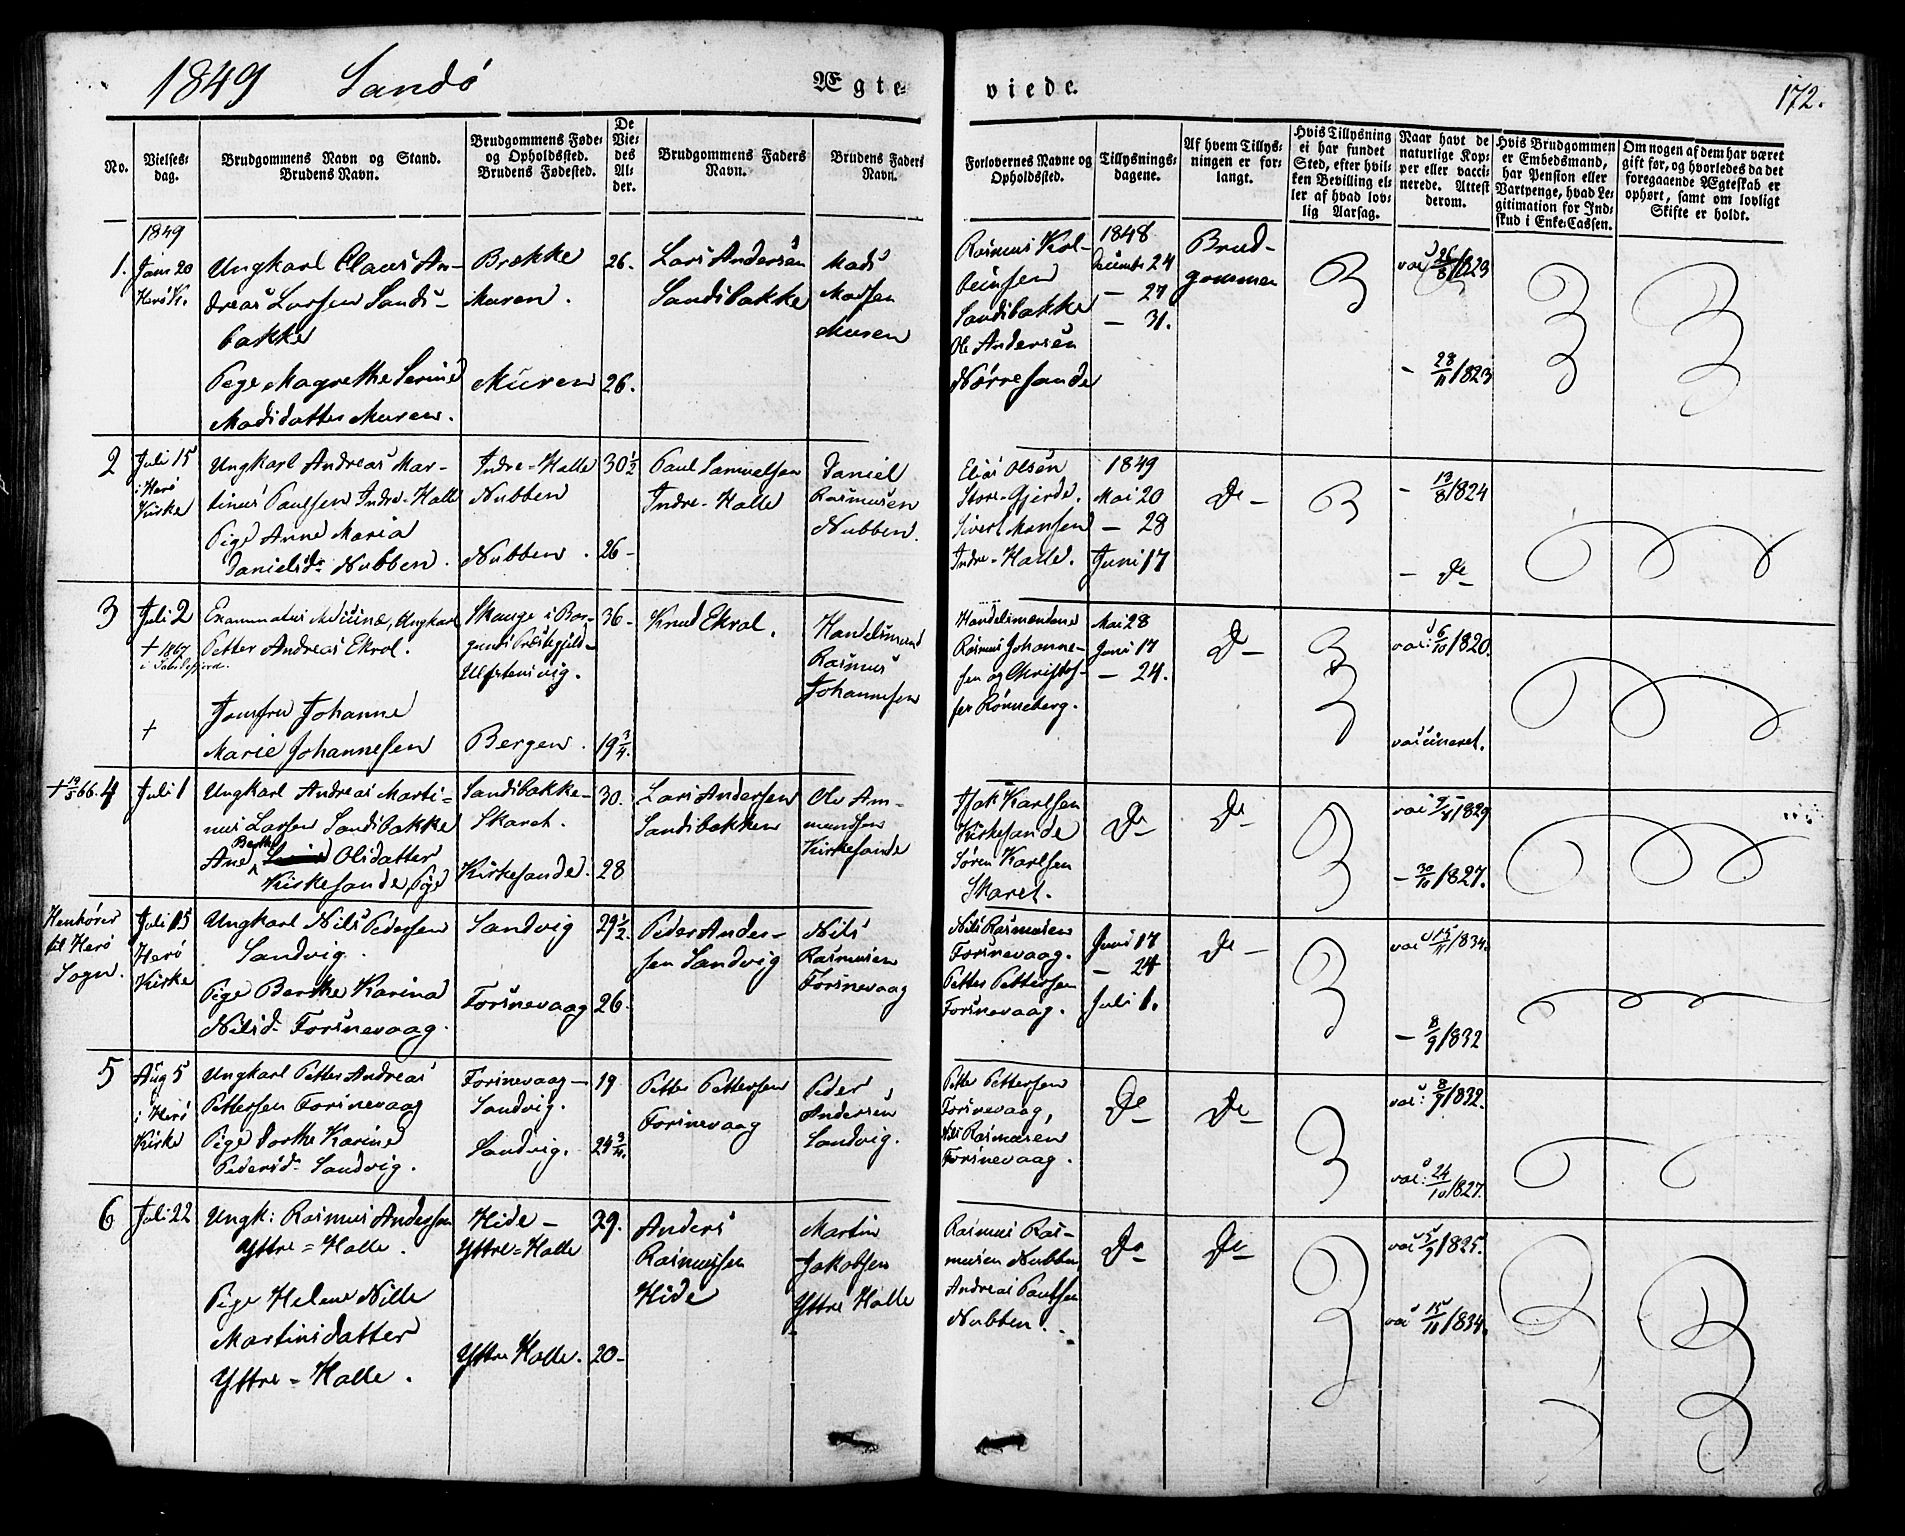 1849 Sandö
Ægte
viede.
172.
No.
Vielses-
dag.
Brudgommens Navn og Stand.
Brudens Navn.
Brudgommens Føde-
og Opholdssted.
Brudens Fødested.
De
Vie-
des
Al-
der.
Brudgommens Faders
Navn.
Brudens Faders
Navn.
Forlovernes Navne og
Opholdssted.
Tillysnings-
dagene.
Af hvem Tillys-
ningen er for-
langt.
Hvis Tillysning
ei har fundet
Sted, efter hvil-
ken Bevilling el-
ler af hvad lov-
lig Aarsag.
Naar havt de
naturlige Kop-
per eller vacci-
nerede. Attest
derom.
Hvis Brudgommen
er Embedsmand,
har Pension eller
Vartpenge, hvad Le-
gitimation for Ind-
skud i Enke-Cassen.
Om nogen af dem har været
gift før, og hvorledes da det
foregaaende Ægteskab er
ophørt, samt om lovligt
Skifte er holdt.
1.
1849
Janu 20
Herö K.
Ungkarl Claus An-
dreas Larsen Sands-
bakke
Pige Magrethe Serine
Madsdatter Muren.
Brække
Muren.
Muren
26.
26.
Lars Andersen
Sandsbakke
Mads
Madsen
Muren
Rasmus Kol-
beinsen
Sandsbakke
Ole Andersen
Nörresande
1848
December 24
— 27
— 31.
Brud-
gommen
vac 26/8 1823
- 28/11 1823
2
Juli 15
i Herö
Kirke
Ungkarl Andreas Mar-
tinus Paulsen Indre-Halle
Pige Anne Maria
Danielsdr Nubben.
Indre-Halle
Nubben
Nubben.
30½
26-
Paul Samuelsen
Indre-Halle
Daniel
Rasmusen
Nubben.
Elias Olsen
Store-Gjerde.
Sivert Monsen
Indre-Halle.
1849
Mai 20
— 28
Juni 17
Do —
- 13/8 1824
— Do
3
Juli 2
+ 1867
+
Examinatus Medicinæ, Ungkarl
Petter Andreas Ekrol.
Jomfru Johanne
Marie Johannesen
Skouge i Bor-
gunds Præstegjeld-
Ulfstensvig.
Bergen.
36-
19¾.
Knud Ekrol.
Handelsmand
Rasmus
Johannesen
Handelsmændene
Rasmus Johanne-
sen og Christof-
fer Rönneberg.
Mai 28
Juni 17
— 24.
Do —
vac: 6/10 1820.
vaccineret.
+ 19/5 66. 4
Juli 1
Ungkarl Andreas Marti-
nus Larsen Sandsbakke
Ane Berthe Olsdatter
Kirkesande, Pige
Sandsbakke-
Skaret.
Kirkesande.
30.
28
Lars Andersen
Sandsbakken
Ole Am-
mundsen
Kirkesande
Isak Karlsen
Kirkesande
Sören Karlsen
Skaret.
Do
Do
vac /8 1829
- 30/10 1827.
Henhörer
til Herö
Sogn.
Juli 15
Herö
Kirke
Ungkarl Nils Pedersen
Sandvig.
Pige Berthe Karina
Nilsd. Forsnevaag.
Sandvig
Forsnevaag
29½.
26.
Peder Ander-
sen Sandvig
Nils
Rasmusen
Forsnevaag
Nils Rasmusen
Forsnevaag.
Petter Pettersen
Forsnevaag.
Juni 17
— 24
Juli 1.
Do —
vac 15/11 1834.
— 8/9 1832
5
Aug 5
i Herö
Kirke
Ungkarl Petter Andreas
Pettersen Forsnevaag
Pige Dorthe Karine
Pedersd. Sandvig.
Forsnevaag —
Sandvig.
Sandvig.
19
24¾.
Petter Pettersen
Forsnevaag
Peder
Andersen
Sandvig.
Petter Pettersen
Forsnevaag,
Nils Rasmusen
Forsnevaag.
Do
Do
vac: 8/9 1832.
vac: 24/10 1827.
6
Juli 22
Ungk: Rasmus Andersen
Yttre-Halle.
Pige Helene Nille
Martinsdatter
Yttre-Halle.
Hide —
Yttre-Halle
Yttre Halle.
29.
20-
Anders
Rasmussen
Hide
Martin
Jakobsen
Yttre Halle
Rasmus Ras-
musen Nubben
Andreas Paulsen
Nubben.
Do
Do
vac 5/9 1825.
vac 15/11 1834.